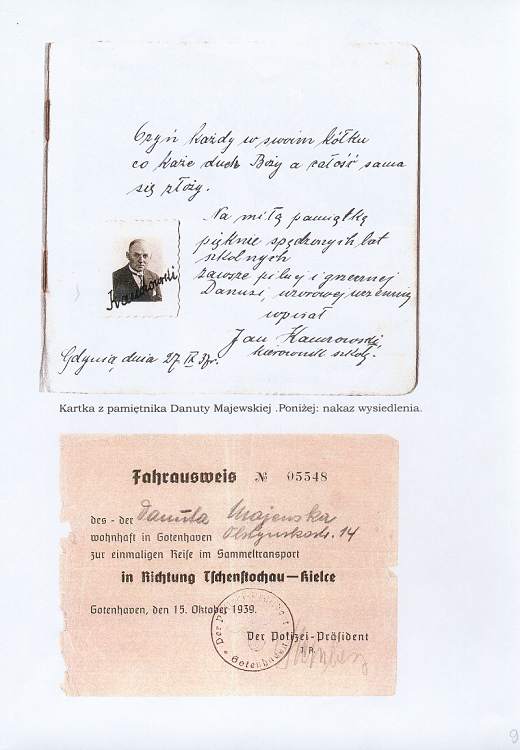 Czyń każdy w swoim kółku
co każe duch Boży a całość sama
się złoży.
Na miłą pamiątkę
pięknie spędzonych lat
szkolnych
zawsze pilnej i grzecznej
Danusi, wzorowej uczennicy
wpisał
Jan Kamrowski,
kierownik szkoły.
Gdynia dnia 27 IX 37r.
Kartka z pamiętnika Danuty Majewskiej .Poniżej: nakaz wysiedlenia.
Fahrausweis № 05548
des - der Danuta Majewska
wohnhaft in Gotenhaven 14
zur einmaligen Reise im Sammeltransport
in Richtung Tschenstochau—Kielce
Gotenhaven, den 15. Oktober 1939.
Der Polizei-Präsident
I. A.
9